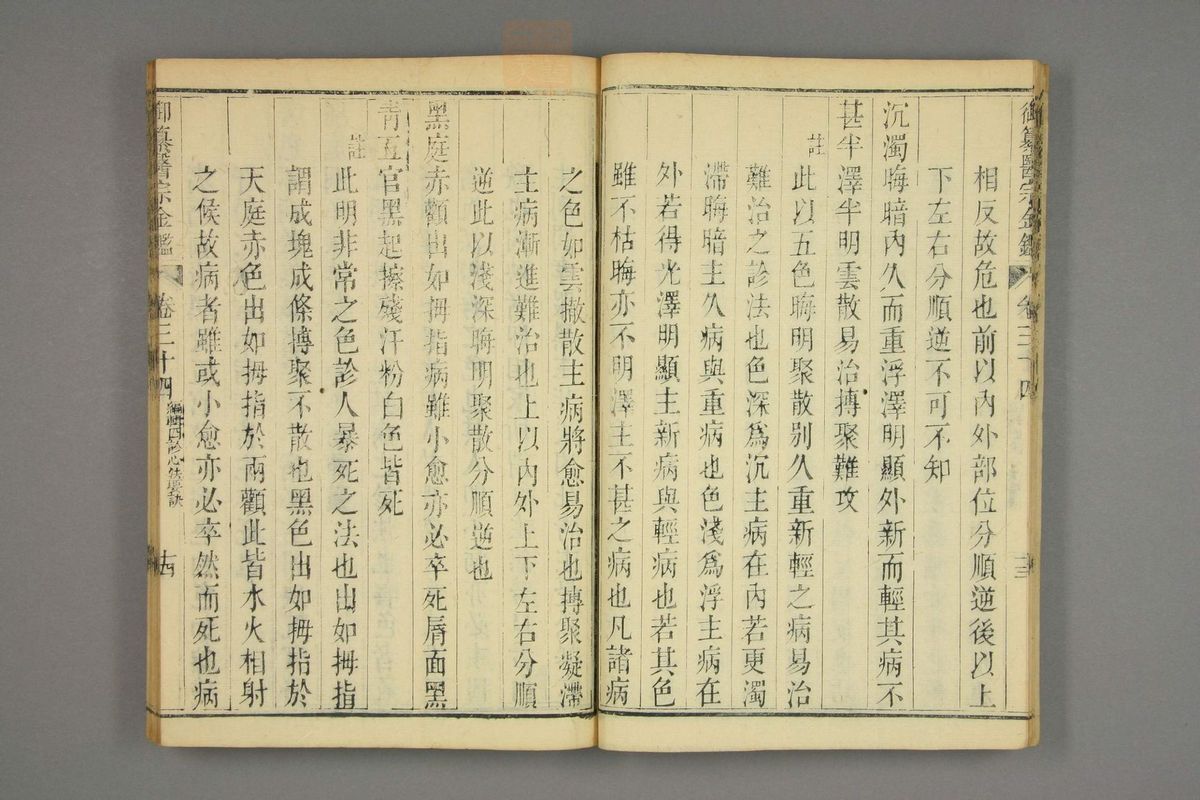 御纂醫宗金鑑 卷三十四 十三
相反故危也前以內外部位分順逆後以上
下左右分順逆不可不知
沉濁晦暗內久而重浮澤明顯外新而輕其病不
甚半澤半明雲散易治摶聚難攻
註
此以五色晦明聚散别久重新輕之病易治
難治之診法也色深爲沉主病在內若更濁
滯晦暗主久病與重病也色淺爲浮主病在
外若得光澤明顯主新病與輕病也若其色
雖不枯晦亦不明澤主不甚之病也凡諸病
之色如雲撤散主病將愈易治也摶聚凝滯
主病漸進難治也上以內外上下左右分順
逆此以淺深晦明聚散分順逆也
黑庭赤顴出如拇指病雖小愈亦必卒死脣面黑
青五官黑起擦殘汗粉白色皆死
註
此明非常之色診人暴死之法也出如拇指
謂成塊成條摶聚不散也黑色出如拇指於
天庭赤色出如拇指於兩顴此皆水火相射
之候故病者雖或小愈亦必卒然而死也病
御纂醫宗金鑑 卷三十四 編輯四診心法要訣 十四